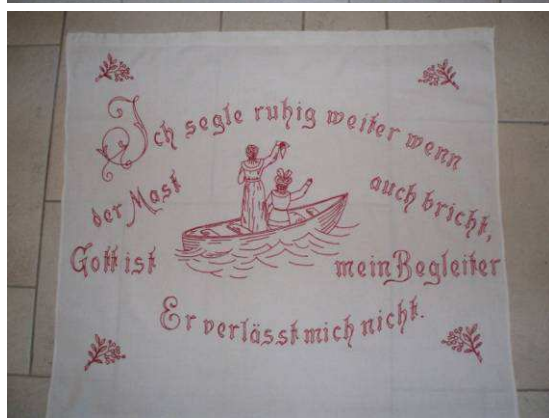 Ich segle ruhig weiter wenn
der Mast auch bricht,
Gott ist mein Begleiter
Er verlässt mich nicht.